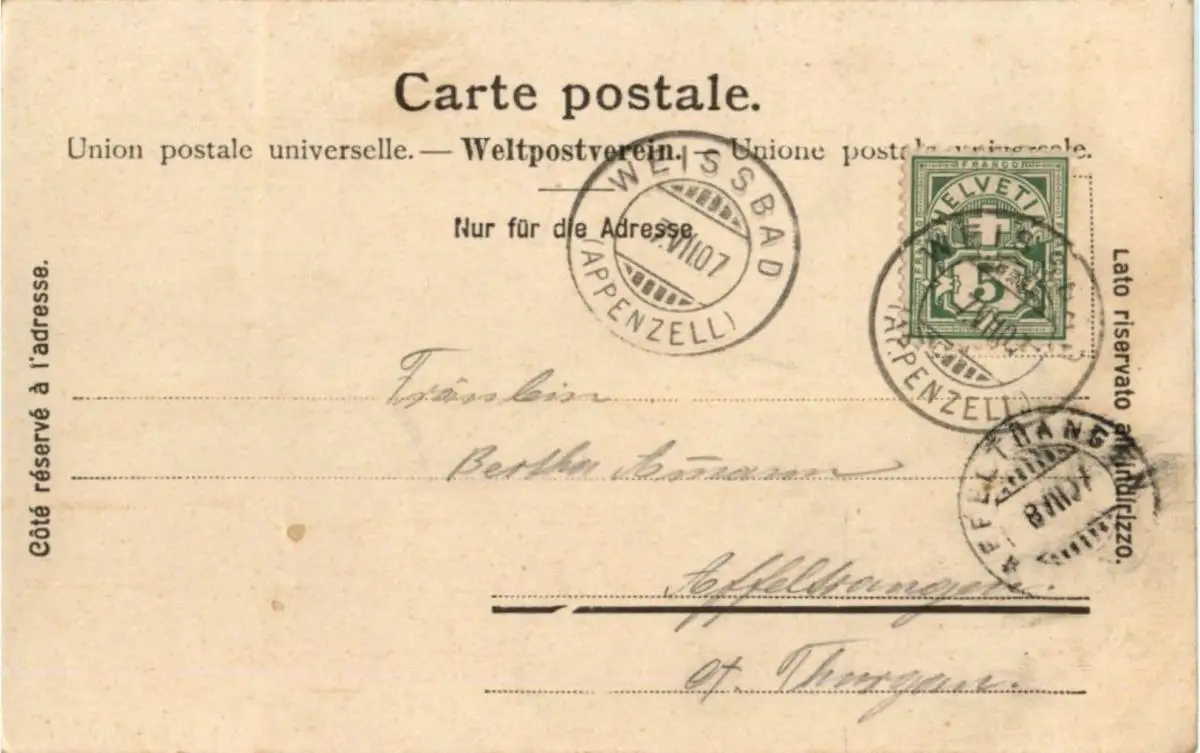 Carte postale.
Union postale universelle. — Weltpostverein. — Unione postale universale.
Nur für die Adresse
WEISSBAD
7.VII.07
(APPENZELL)
FRANCO
HELVETIA
5
WEISSBAD
7.VII.07
(APPENZELL)
Côté réservé à l'adresse.
Lato riservato all'indirizzo.
Fräulein
Bertha Amann
AFFELTRANGEN
8.VII.07
Affeltrangen.
Ct. Thurgau.